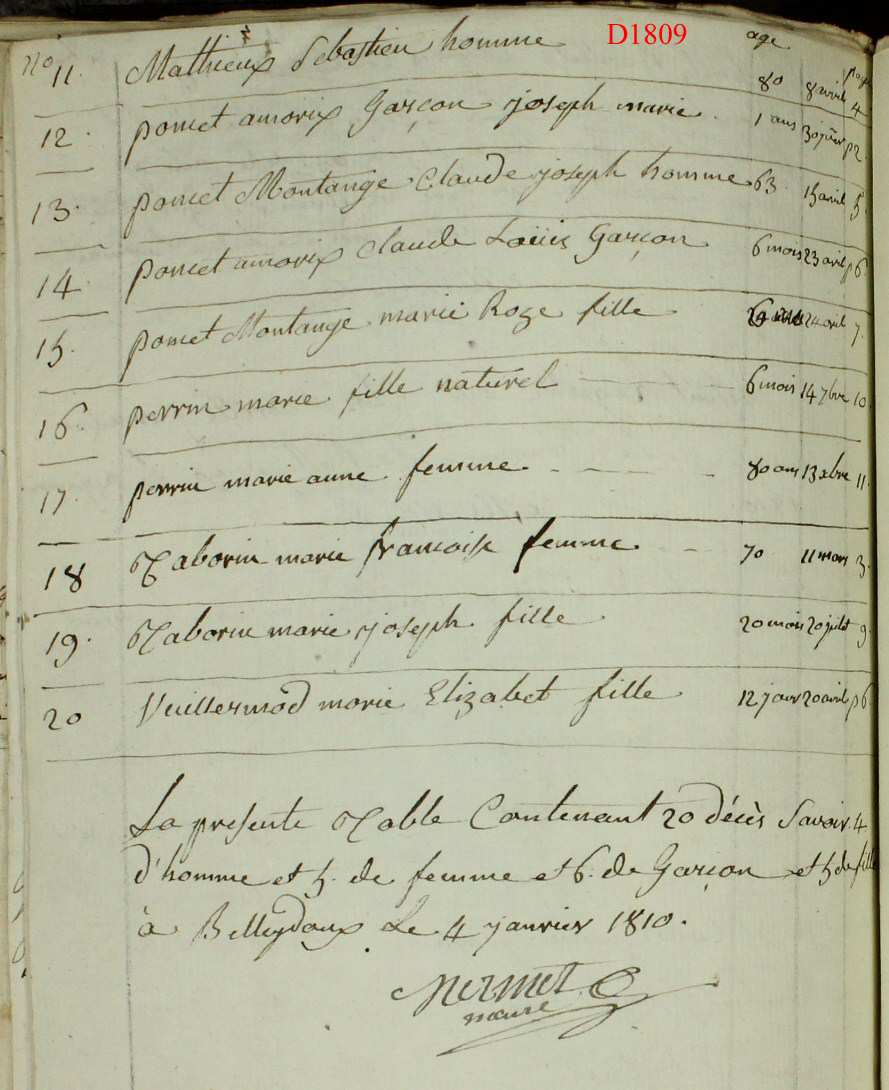 D1809
No age page
11. Mathieux Sebastien homme 80 8 avril 4
12. poncet amorix Garçon joseph marie. 1 ans 30 jver p 2.
13. poncet Montange Claude joseph homme 63. 15 avril 5
14. poncet amorix claude Loüis Garçon 6 mois 23 avril p 6
15. poncet Montange marie Roze fille 24 avril 7.
16. perrin marie fille naturel 6 mois 14 7bre 10
17. perrin marie anne femme. 80 ans 13 xbre 11
18 Taborin marie francoise femme 70 11 mars 3.
19. Taborin marie joseph fille 20 mois 20 julet 9
20 Vuillermod marie Elizabet fille 12 jour 20 avril p 6
La presente Table Contenant 20 décès Savoir 4
d'homme et 5. de femme et 6. de Garçon et 5 de fille
à Belleydoux Le 4 janvier 1810.
Mermet
maire